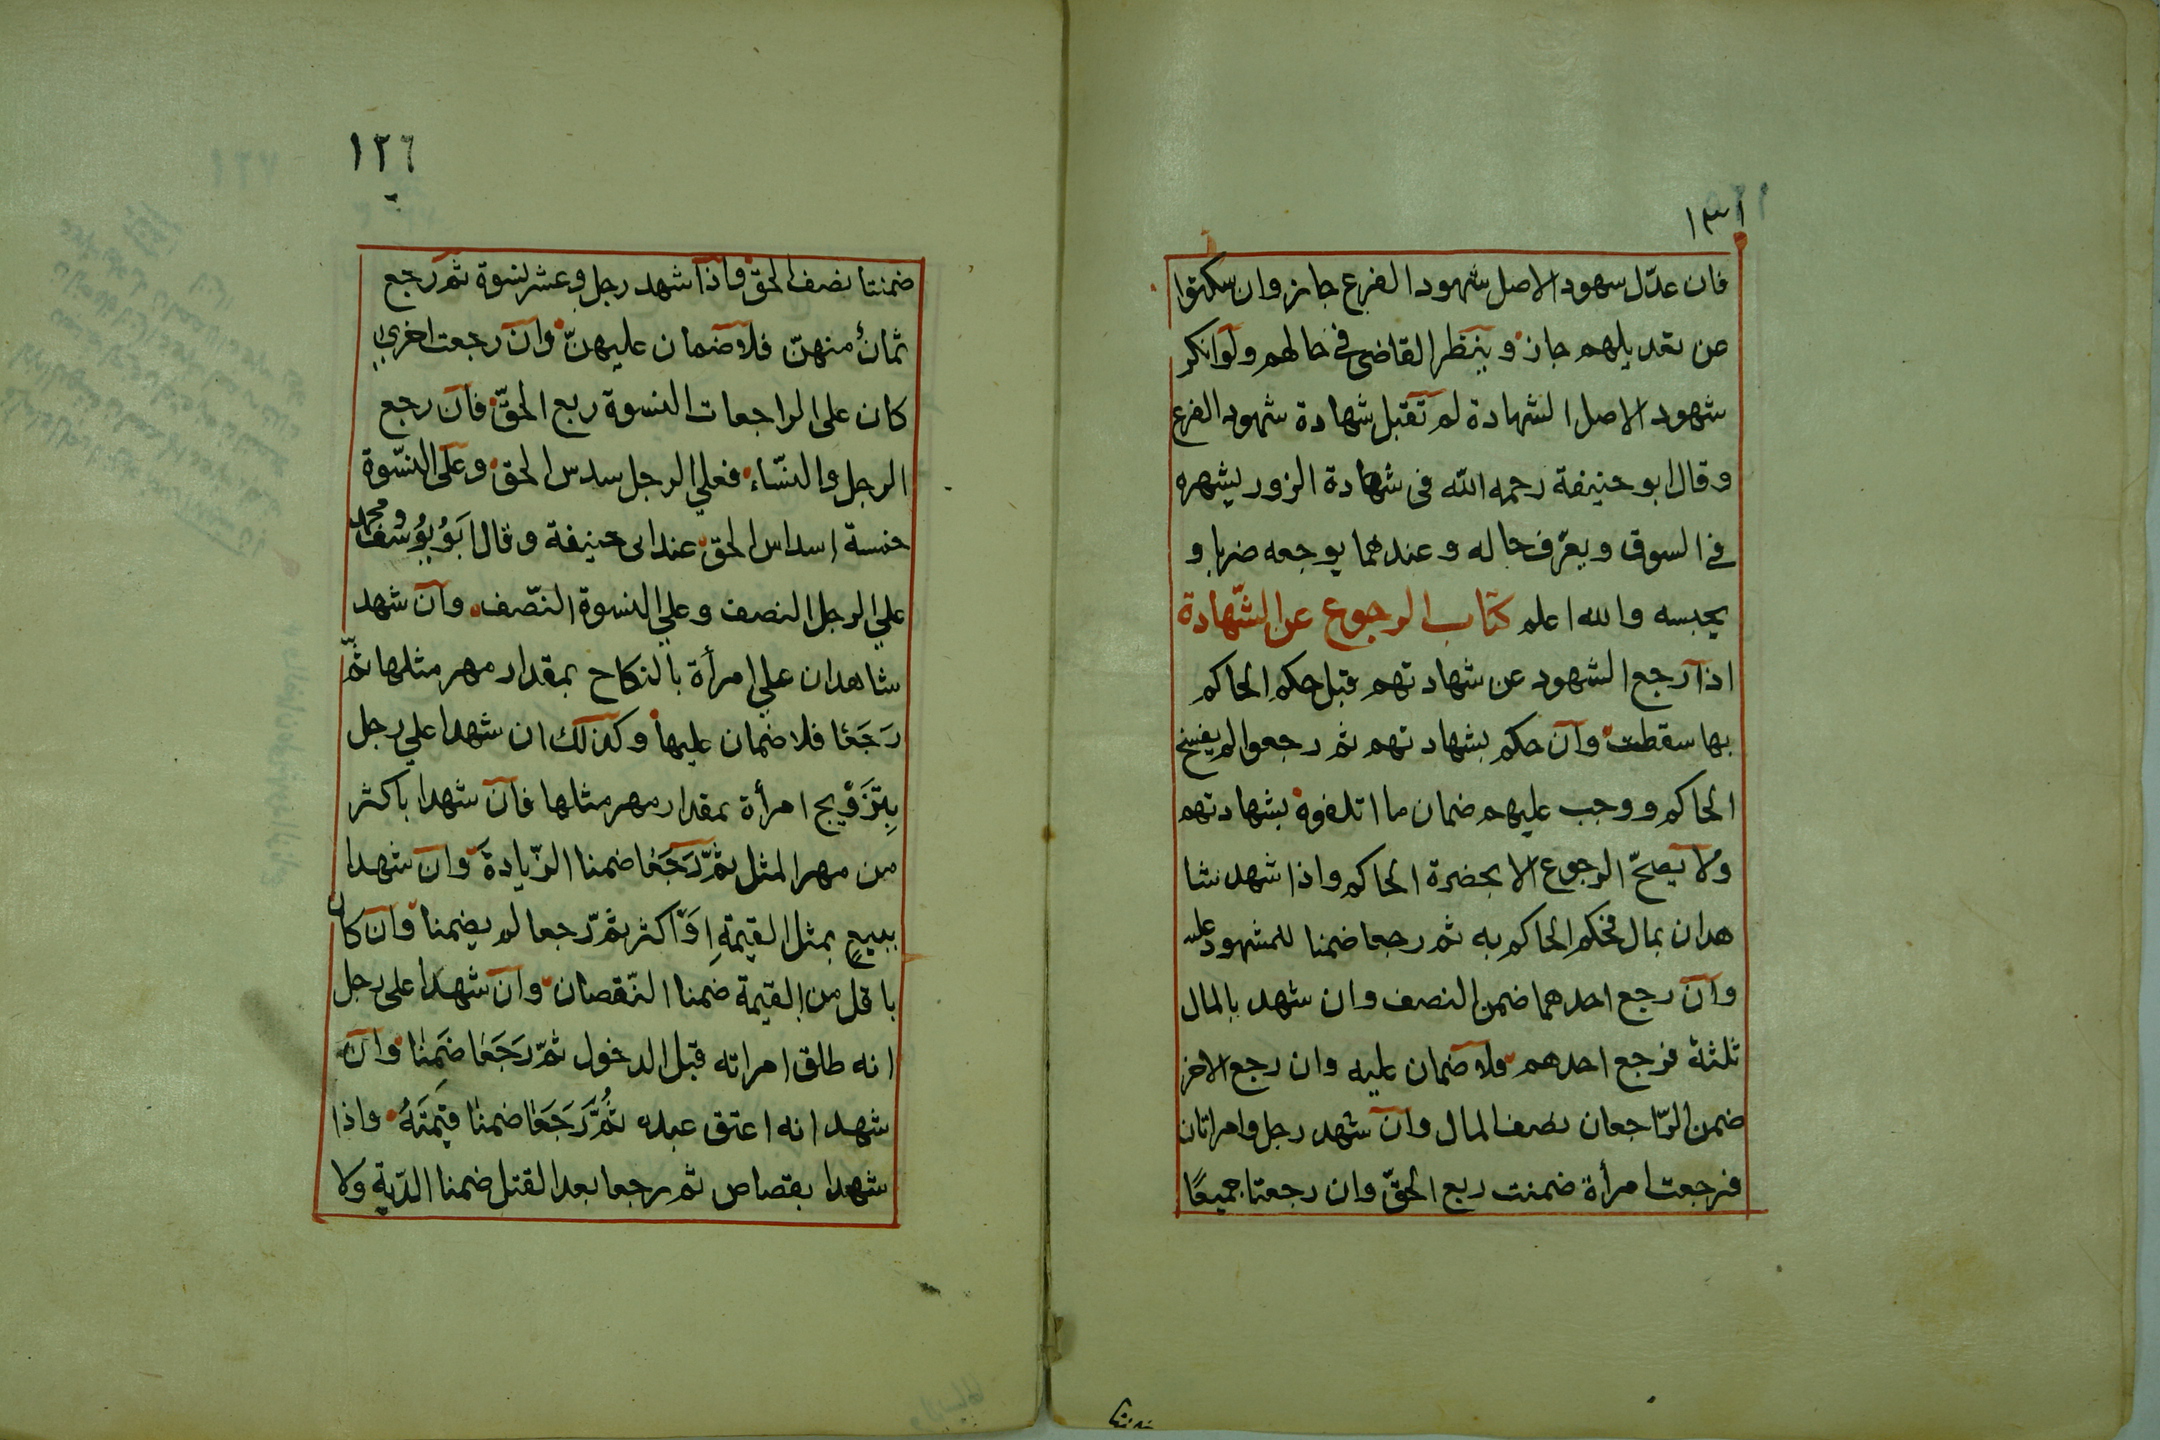 ١٣١
فان عدّل سهود الاصل شهود الفرع جاز وان سكتوا
عن تعديلهم جاز وينظر القاضى فى حالهم ولو انكر
شهود الاصل الشهادة لم تقبل شهادة شهود الفرع
وقال ابو حنيفة رحمه الله فى شهادة الزور يشهره
فى السوق ويعرّف حاله وعندهما يوجعه ضربا و
يحبسه والله اعلم كتاب الرجوع عن الشّهادة
اذا رجع الشهود عن شهادتهم قبل حكم الحاكم
بها سقطت وان حكم بشهادتهم ثم رجعوا لم يفسخ
الحاكم ووجب عليهم ضمان ما اتلفوه بشهادتهم
ولا يصحّ الرجوع الا بحضرة الحاكم واذا شهد شا
هدان بمال فحكم الحاكم به ثم رجعا ضمنا للمشهود عليه
وان رجع احدهما ضمن النصف وان شهد بالمال
ثلثة فرجع احدهم فلا ضمان عليه وان رجع الاخر
ضمن الرّاجعان نصف المال وان شهد رجل وامراتان
فرجعت امرأة ضمنت ربع الحقّ وان رجعتا جميعًا
ضمنتا
١٢٦
ضمنتا نصف الحقّ واذا شهد رجل وعشر نسوة ثم رجع
ثمانٌ منهنّ فلا ضمان عليهنّ وان رجعت اخرى
كان على الراجعات النسوة ربع الحقّ فان رجع
الرجل والنسّاء فعلى الرجل سدس الحق وعلى النسّوة
خمسة اسداس الحق عند ابى حنيفة وقال ابَوُ يوُسُف ومحمد
على الرجل النصف وعلى النسوة النّصف وان شهد
شاهدان على امرأة بالنكاح بمقدار مهر مثلها ثمّ
رَجَعَا فلا ضمان عليها وكذلك ان شهدا على رجل
بِتَزَوِيج امرأة بمقدار مهر مثلها فان شهدا باكثر
من مهر المثل ثمّ رَجَعَا ضمنا الزّيادة وان شهدا
ببيعٍ بمثل القيمةِ اوَ اكثر ثمّ رجعا لم يضمنا وان كان
باقل من القيمة ضمنا النّقصان وان شهدا على رجل
انه طلق امراته قبل الدخول ثمّ رَجَعَا ضَمِنَا وان
شهدا انه اعتق عبده ثُمَّ رَجَعَا ضمنَا قِيمَتَهُ واذا
شهدا بقصاص ثم رجعا بعد القتل ضمنا الدّية ولا